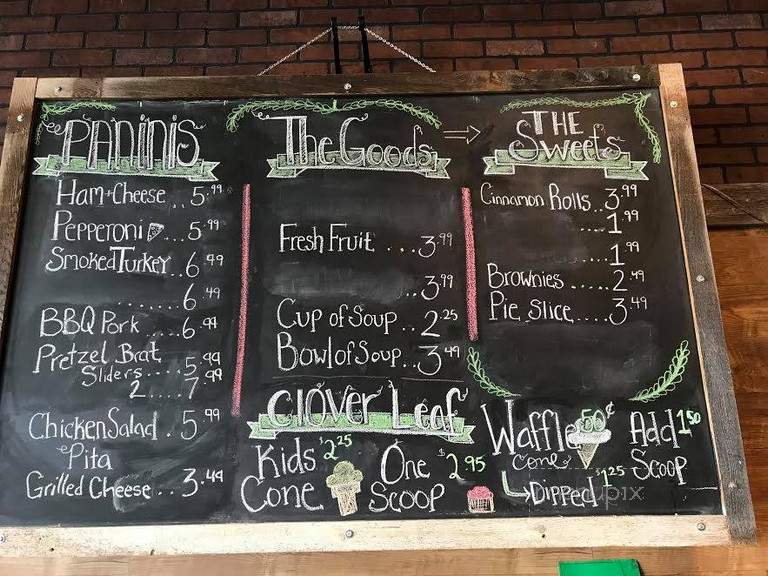 PANINIS
Ham+Cheese .. 5.99
Pepperoni ... 5.99
Smoked Turkey .. 6.49
....... 6.49
BBQ Pork .... 6.99
Pretzel Brat
Sliders .... 5.99
2 .... 7.99
Chicken Salad . 5.99
Pita
Grilled Cheese ... 3.49
The Goods
Fresh Fruit ... 3.99
... 3.99
Cup of Soup .. 2.25
Bowl of Soup .. 3.49
THE
Sweets
Cinnamon Rolls .. 3.99
.... 1.99
.... 1.99
Brownies ..... 2.49
Pie Slice .... 3.49
Clover Leaf
Kids $2.25
Cone
One $2.95
Scoop
Waffle 50¢
Cone
Dipped $1.25
Add 1.50
Scoop